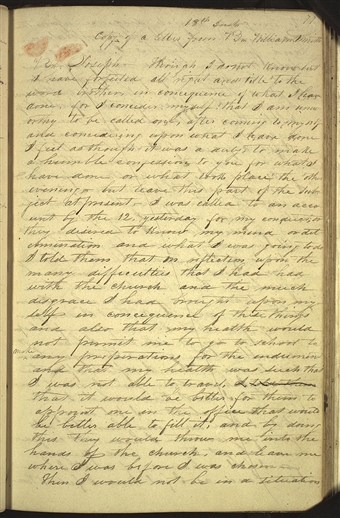 18th Inst
Copy of a letter from Dr William Smith
Br. Joseph— Though I do not know but
I have forfeited all right and title to the
word brother, in concequence of what I have
done, for I concider myself that I am unw
orthy to be called one, after coming to myself
and concidering upon what I have done
I feel as though it was a duty, to make
a humble confession to you for what I
have done or what took place the other
evening— but leave this part of the sub
ject at present. I was called to an acco
unt by the 12, yesterday for my conduct; or
they desired to know my mind or det
ermination and what I was going to do
I told them that on reflection upon the
many difficulties that I had had
with the church and the much
disgrace I had brought upon my
self in concequence of these things
and also that my health would
not permit me to go to school to
make
any preparations for the endument
and that my health was such that
I was not able to travel,
that it would be better for them to
appoint one in the office that would
be better able to fill it, and by doing
this they would throw me into the
hands of the church, and leave me
where I was before I was chosen—
Then I would not be in a situation